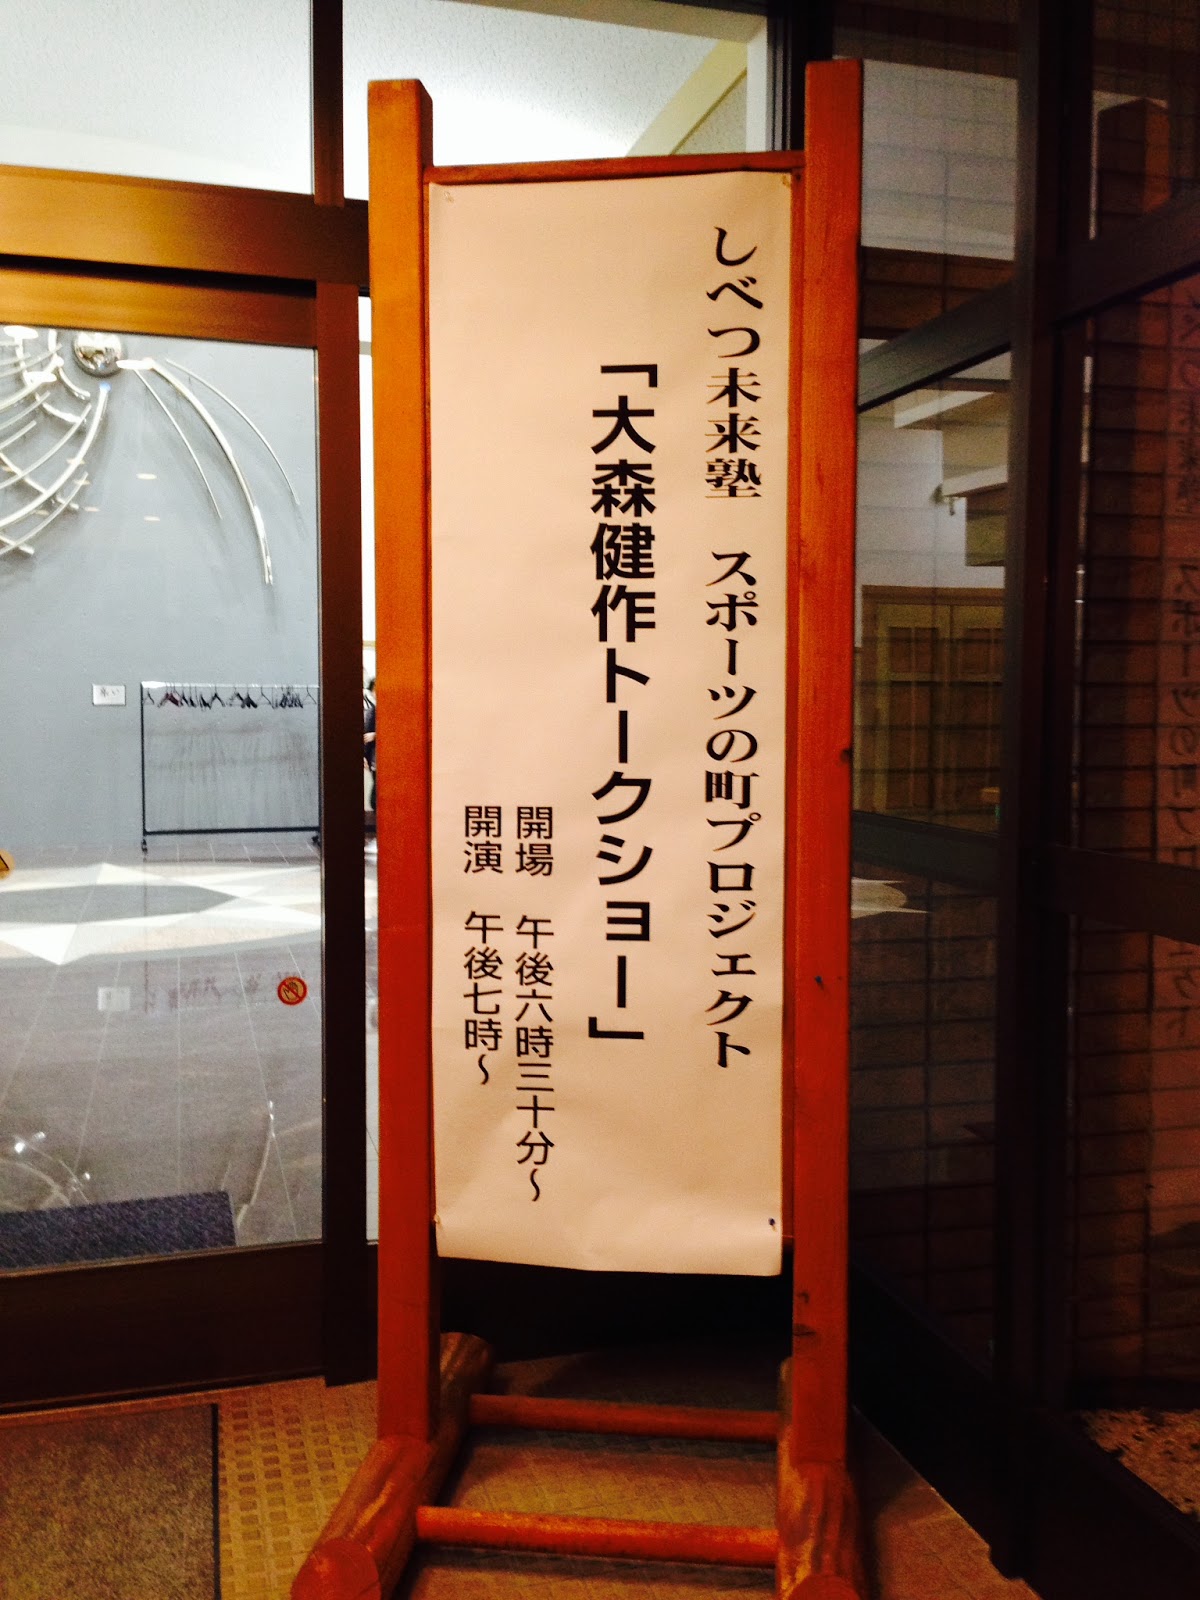 しべつ未来塾　スポーツの町プロジェクト
「大森健作トークショー」
開場　午後六時三十分～
開演　午後七時～